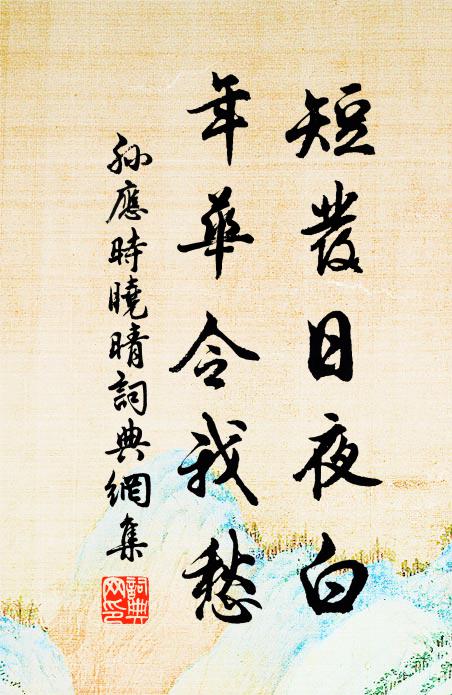 短發日夜白
年華令我愁
孫應時曉晴詞典網集
詞典網印